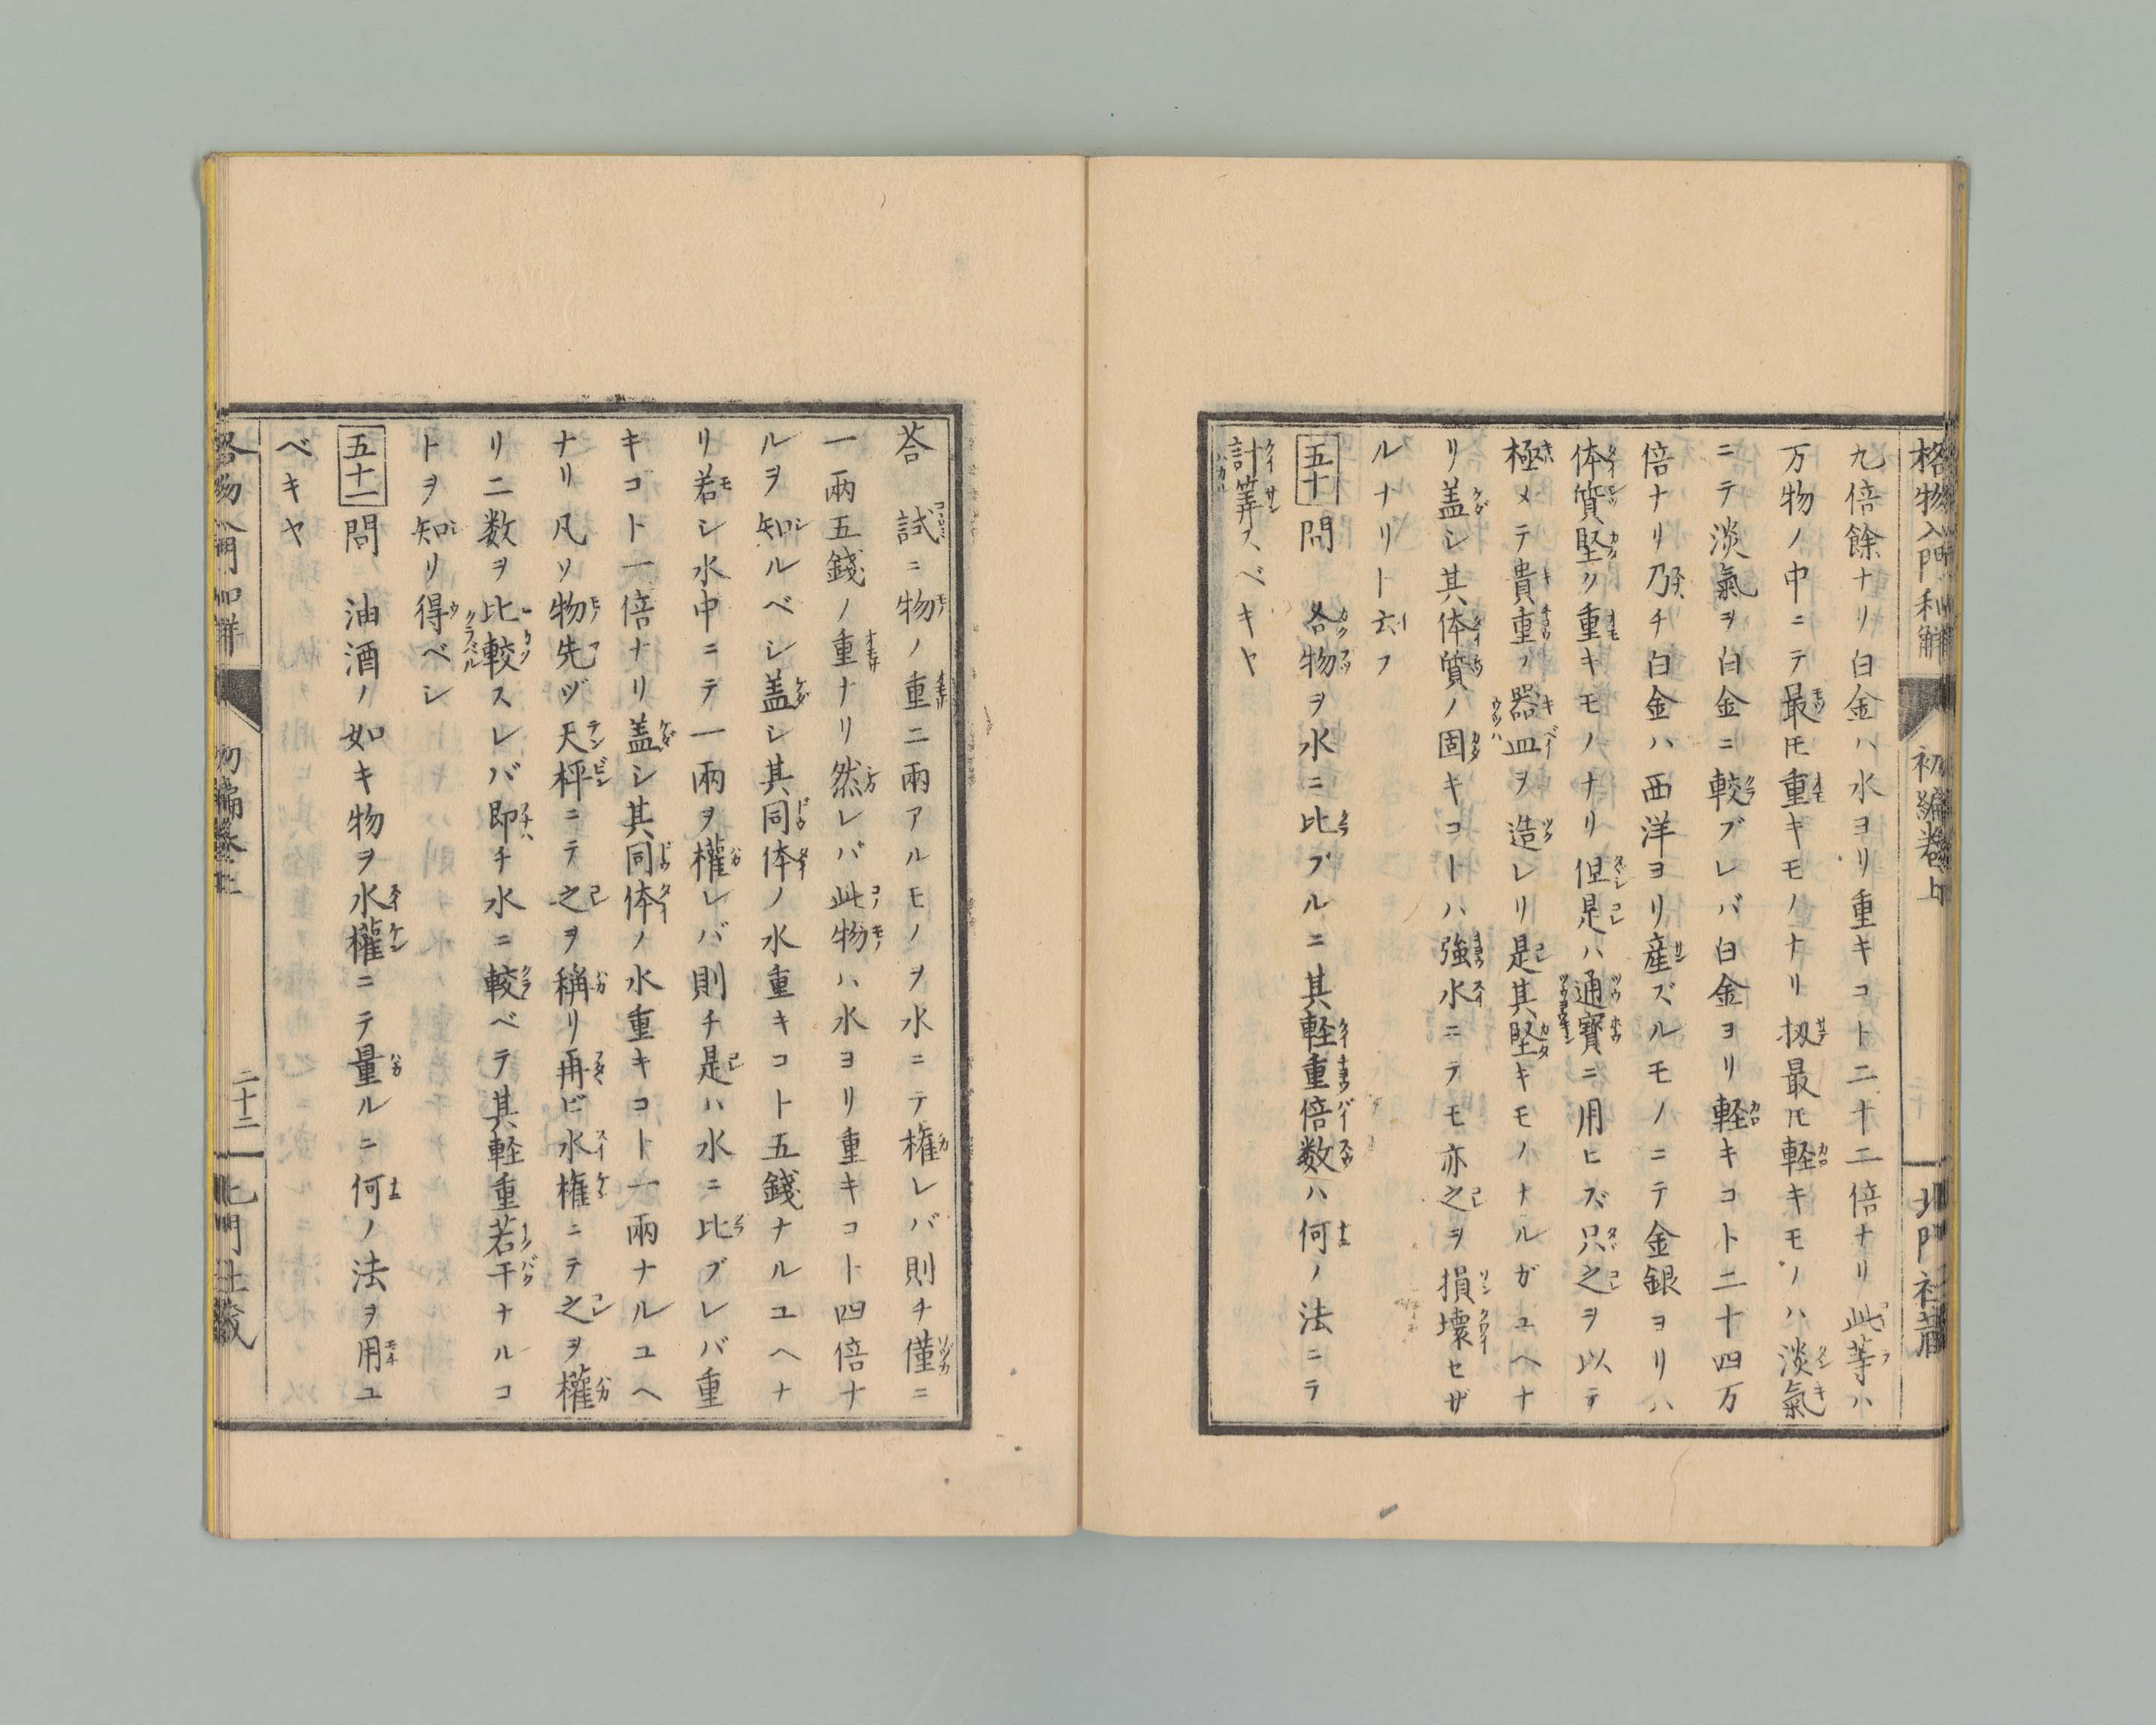 格物入門和解 初編巻上 北門社蔵
九倍餘ナリ白金ハ水ヨリ重キコト二十二倍ナリ此等ハ
万物ノ中ニテ最モ重キモノナリ扨最モ軽キモノハ淡氣
ニテ淡氣ヲ白金ニ較ブレバ白金ヨリ軽キコト二十四万
倍ナリ乃チ白金ハ西洋ヨリ産ズルモノニテ金銀ヨリハ
体質堅ク重キモノナリ但是ハ通寳ニ用ヒズ只之ヲ以テ
極メテ貴重ノ器皿ヲ造レリ是其堅キモノナルガユヘナ
リ盖シ其体質ノ固キコトハ強水ニテモ亦之ヲ損壊セザ
ルナリト云フ
五十 問 各物ヲ水ニ比ブルニ其軽重倍数ハ何ノ法ニテ
計筭スベキヤ
荅 試ニ物ノ重ニ兩アルモノヲ水ニテ権レバ則チ僅ニ
一兩五錢ノ重ナリ然レバ此物ハ水ヨリ重キコト四倍ナ
ルヲ知ルベシ盖シ其同体ノ水重キコト五錢ナルユヘナ
リ若シ水中ニテ一兩ヲ權レバ則チ是ハ水ニ比ブレバ重
キコト一倍ナリ盖シ其同体ノ水重キコト一兩ナルユヘ
ナリ凡ソ物先ヅ天秤ニテ之ヲ稱リ再ビ水権ニテ之ヲ權
リニ数ヲ比較スレバ即チ水ニ較ベテ其軽重若干ナルコ
トヲ知リ得ベシ
五十一 問 油酒ノ如キ物ヲ水權ニテ量ルニ何ノ法ヲ用ユ
ベキヤ
格物入門和解 初編巻上 二十二 北門社蔵